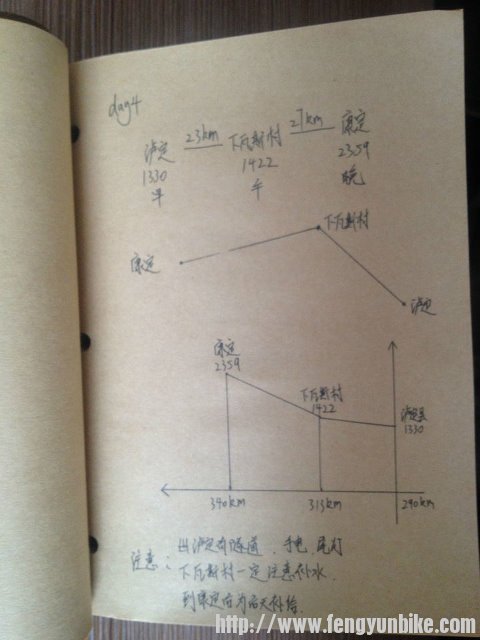 day4
23km 27km
泸定 下瓦斯村 康定
1330 1422 2359
早 午 晚
下瓦斯村
康定
泸定
康定
2359
下瓦斯村
1422
泸定县
1330
340km 313km 290km
出泸定有隧道，手电 尾灯
注意：
下瓦斯村一定注意补水.
到康定后为后天补给.
http://www.fengyunbike.com